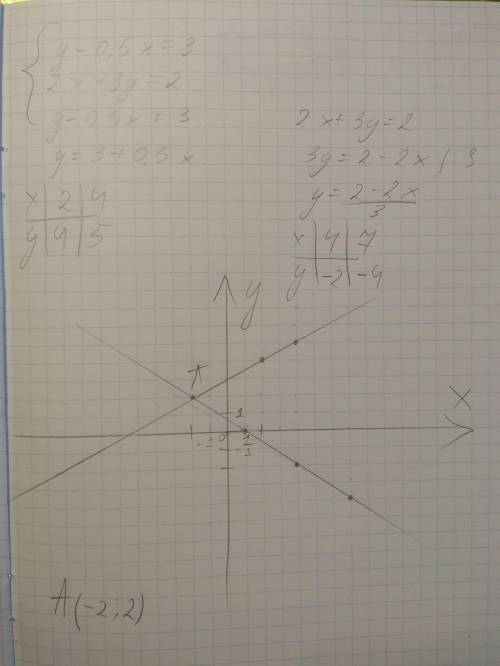 y - 0,5x = 3
2x + 3y = 2
y - 0,5x = 3
y = 3 + 0,5x
x | 2 | 4
y | 4 | 5
2x + 3y = 2
3y = 2 - 2x | : 3
y = (2 - 2x)/3
x | 4 | 7
y | -2 | -4
y
A
x
1
-1
0
1
-1
A(-2; 2)